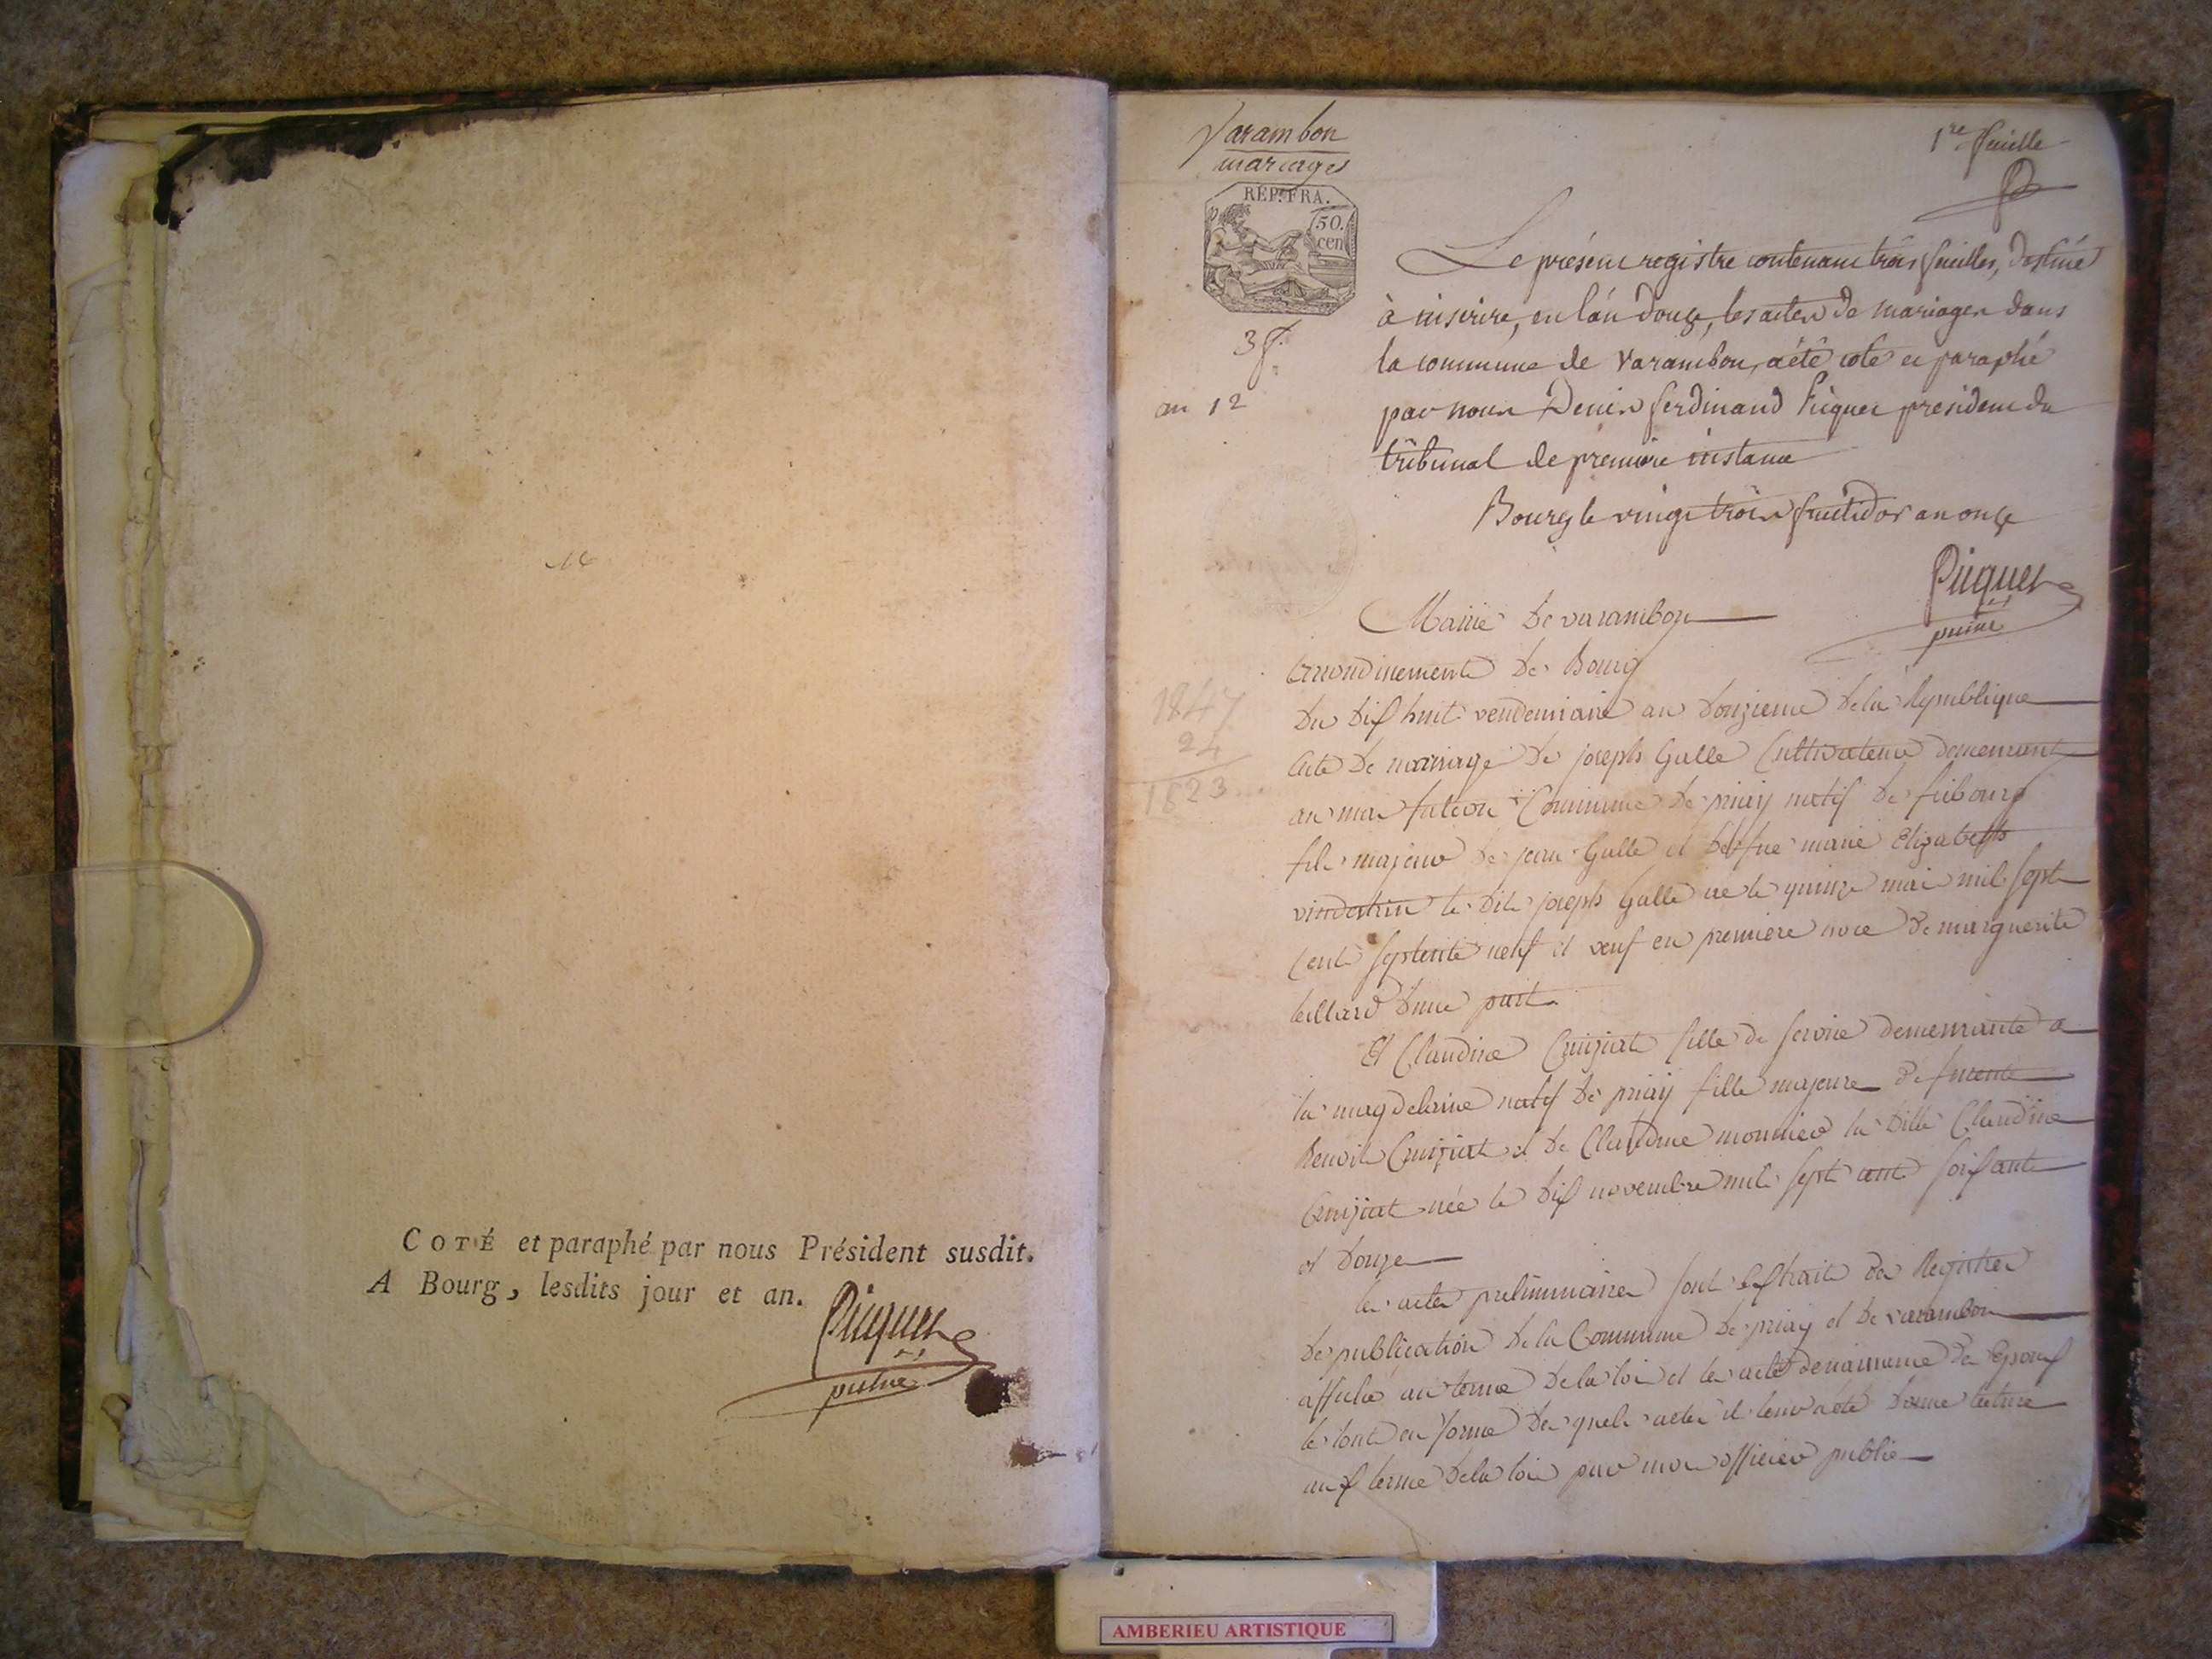 COTÉ et paraphé par nous Président susdit.
A Bourg, lesdits jour et an.
Picquet
Varambon
mariages
REP. FRA.
50.
cen
3 f.
an 12
1847
24
1823
1re feuille
Le présent registre contenant trois feuilles, destiné
à inscrire, en l'an douze, les actes de mariages dans
la commune de Varambon, a été coté et paraphé
par nous Denis ferdinand Picquet président du
tribunal de première instance
Bourg le vingt trois fructidor an onze
Picquet
Mairie de varambon
Arrondissement de Bourg
du dix huit vendemiaire an douzieme de la Republique
Acte de mariage de joseph Galle Cultivateur demeurant
au commune de priay natif de fribourg
fils majeur de jean Galle et defue marie Elizabeth
le dit joseph Galle né le quinze mai mil sept
cent septente neuf et veuf en premiere noce de marguerite
d'une part
Et Claudine Cruiziat fille de servine demeurante a
la magdeleine natif de priay fille majeure de
Benoit Cruiziat et de Claudine monnier la ditte Claudine
Cruiziat née le dix novembre mil sept cent soixante
et douze
les actes preliminaires sont extrait des Registres
de publication de la Commune de priay et de varambon
affiché au terme de la loi et les actes de naissance des Epoux
le tout en forme des quels actes il leur a été donné lecture
aux terme de la loi par moi officier public